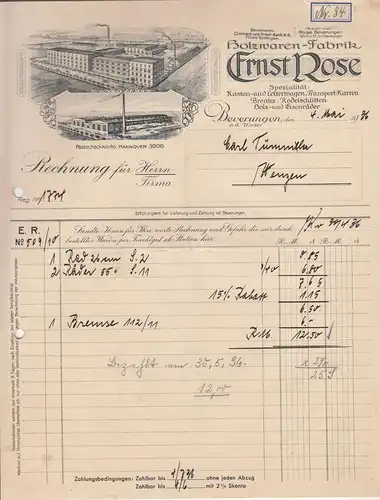 Nr. 84
Holzwaren-Fabrik
Ernst Rose
Spezialität:
Kasten- und Leiterwagen, Transport-Karren
Breaks, Rodelschlitten
Holz- und Eisenräder
Beverungen, den 4. Mai 1936
a.d. Weser
Postscheckkonto: HANNOVER 3806
Rechnung für Herrn
Firma
Carl Tümmler
Wenzen
Reg. No 1774
Erfüllungsort für Lieferung und Zahlung ist Beverungen.
E. R.
No 509/10
Sandte Ihnen für Ihre werte Rechnung und Gefahr die mir durch
bestellten Waren per Frachtgut ab Station hier:
R.-M. R.-M.
1 Rad 26 cm S.2 0.85
2 Räder 55 S.11 3/40 6.80
7.65
15% Rabatt 1.15
6.50
1 Bremse 112/11 6.-
R.M. 12.50
Bezahlt am 30.5.36.
12,00
Zahlungsbedingungen: Zahlbar bis 1/7 36 ohne jeden Abzug
Zahlbar bis 4/6. mit 2% Skonto